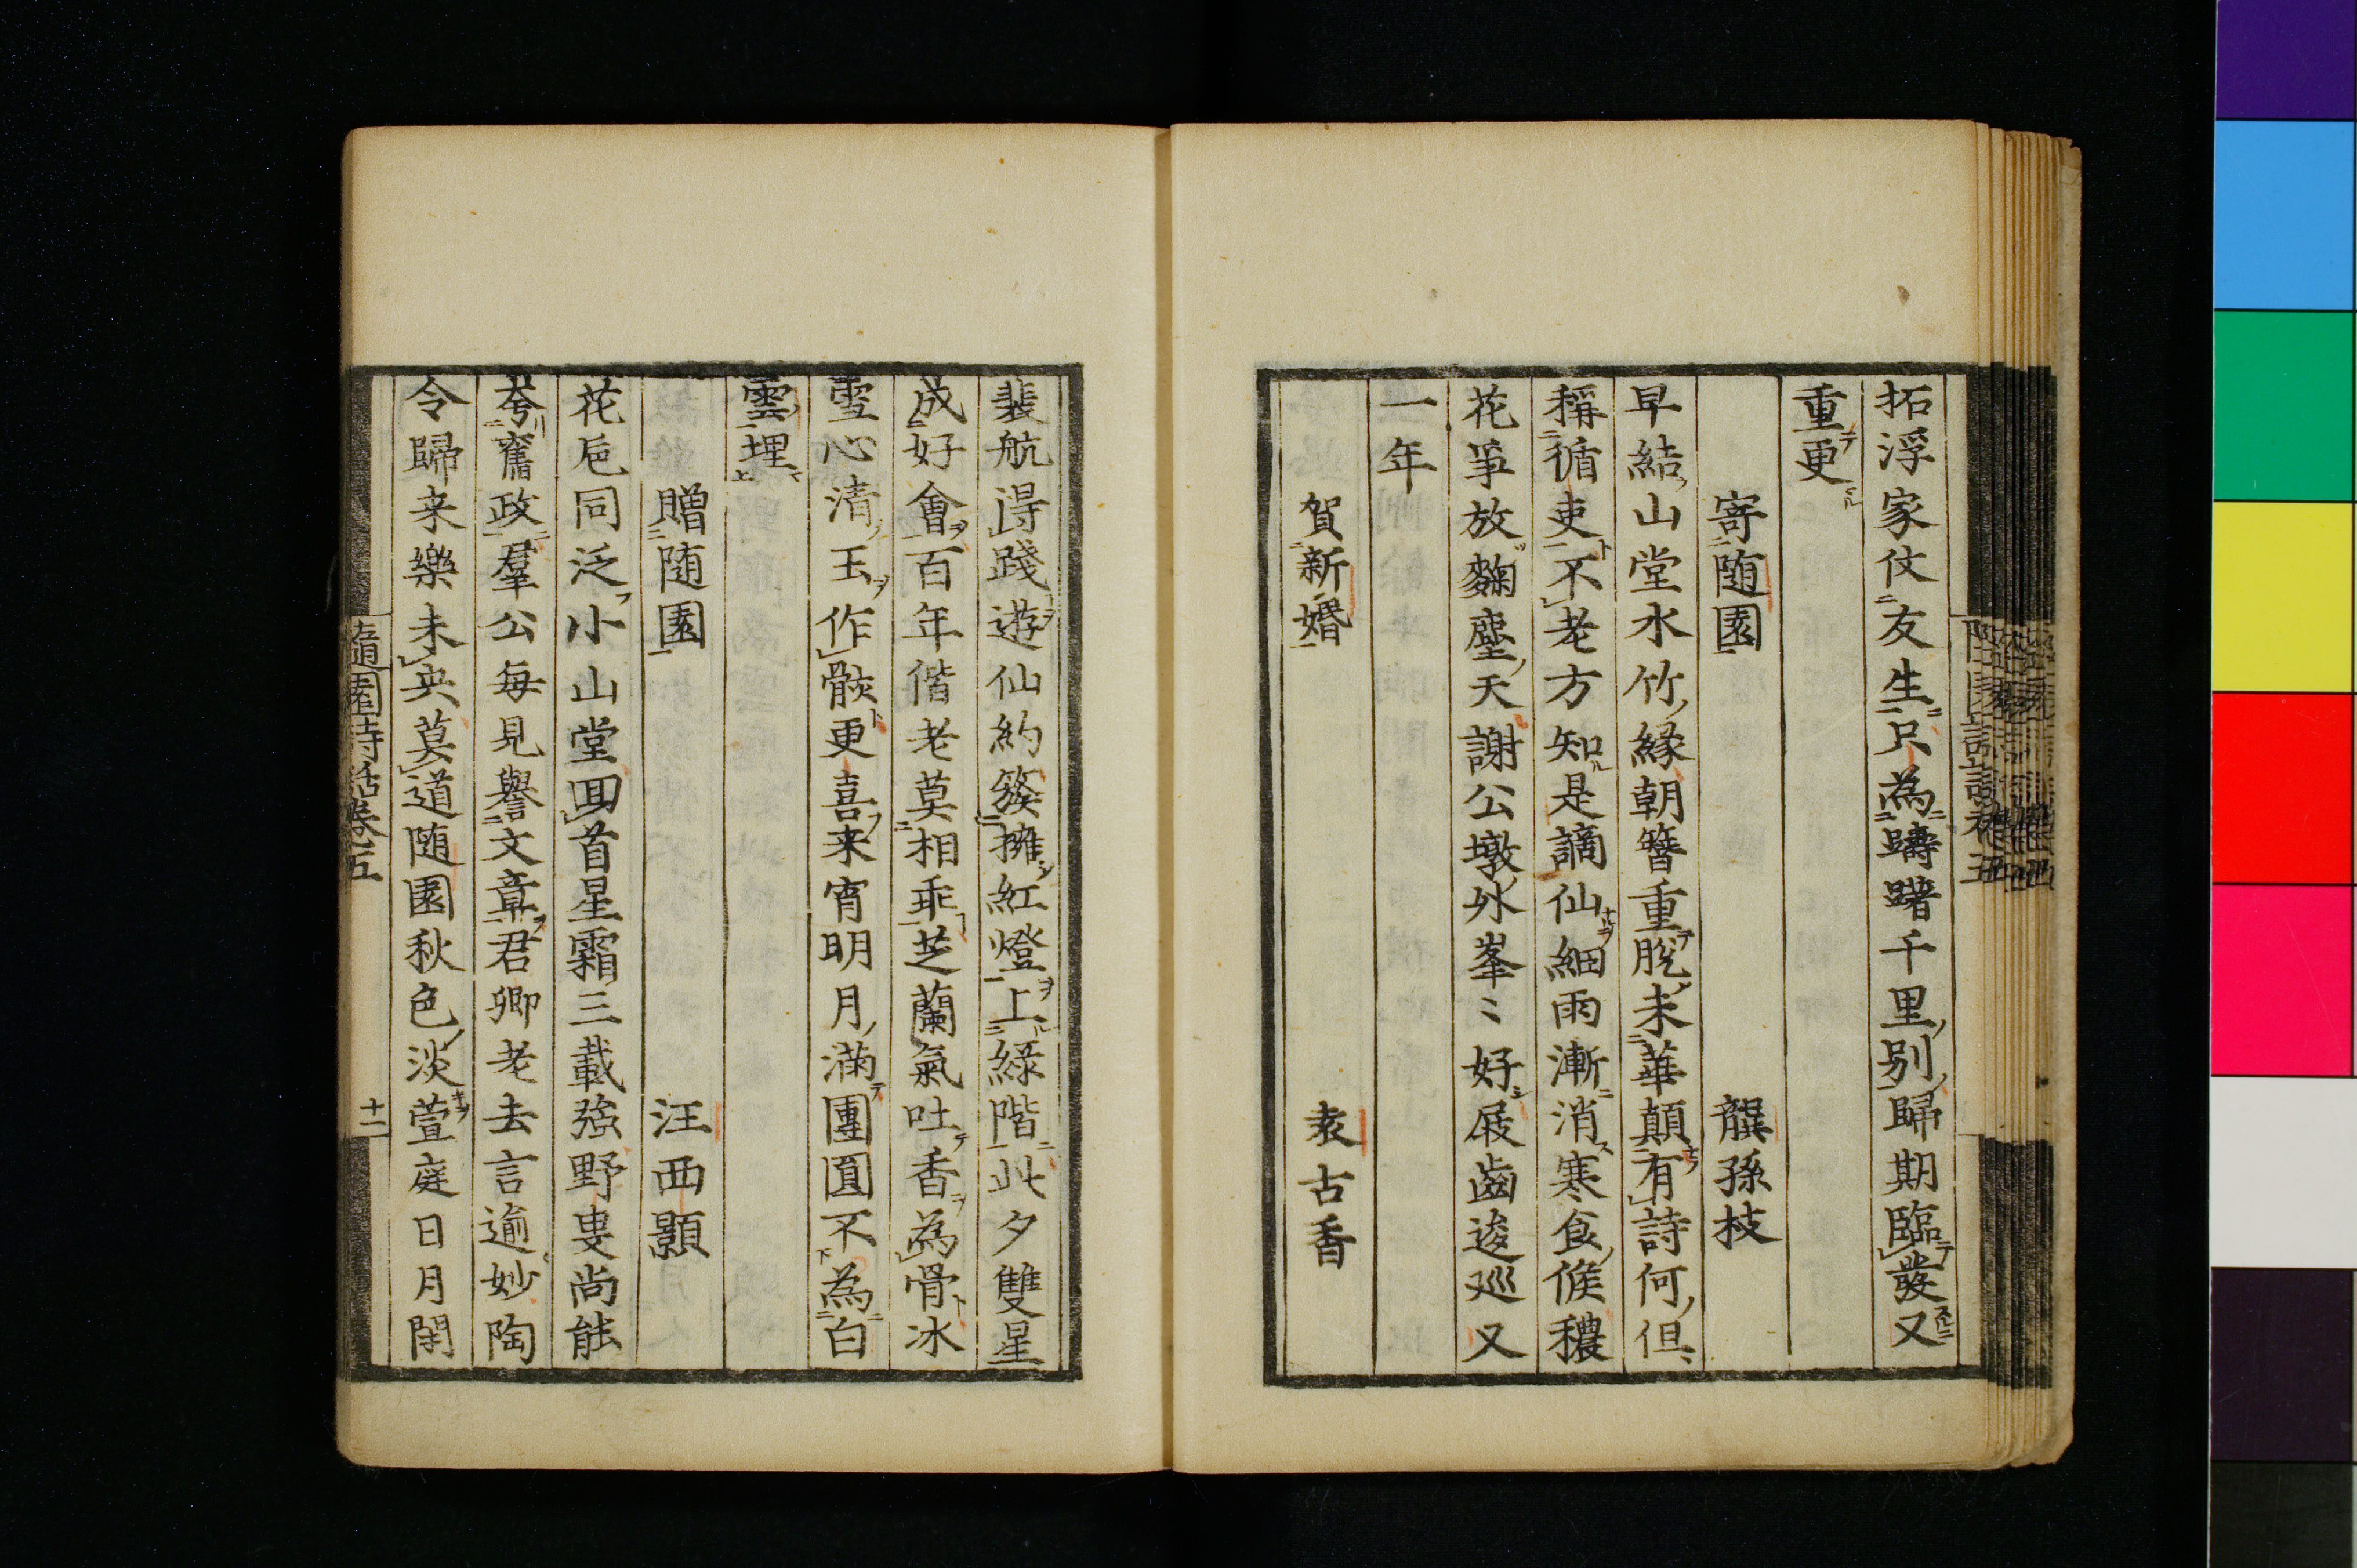 拓浮家仗友生只為躊躇千里別歸期臨發又
重更
寄随園 龔孫枝
早結山堂水竹緣朝簪重脫未華顛有詩何但
稱循吏不老方知是謫仙細雨漸消寒食候穠
花爭放麴塵天謝公墩外峯〻好屐齒逡巡又
一年
賀新婚 袁古香
裴航得踐遊仙約簇擁紅燈上綠階此夕雙星
成好會百年偕老莫相乖芝蘭氣吐香為骨冰
雪心清玉作骸更喜来宵明月滿團圓不為白
雲埋
贈随園 汪西顥
花巵同泛小山堂回首星霜三載強野叟尚能
夸舊政羣公每見譽文章君卿老去言逾妙陶
令歸来樂未央莫道随園秋色淡萱庭日月閑
隨園詩話卷五 十一